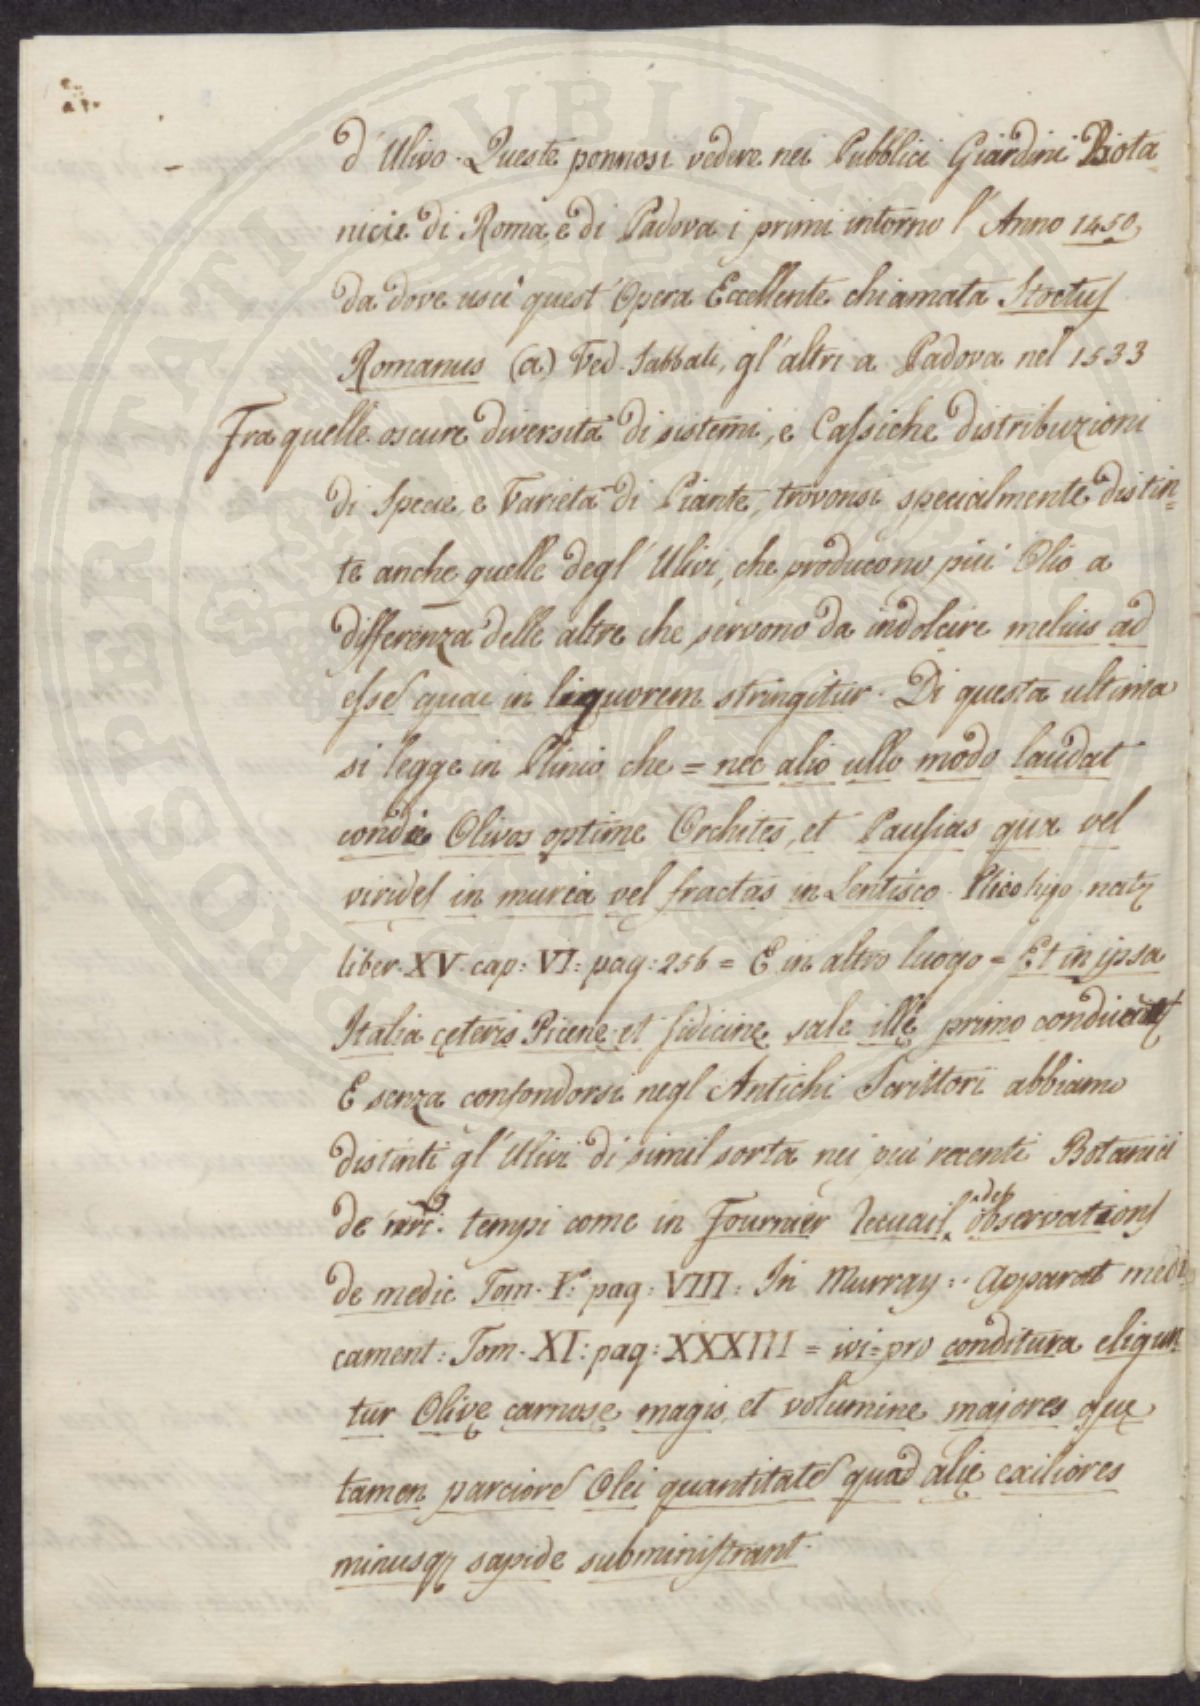 d'Ulivo. Queste ponnosi vedere nei Pubblici Giardini Bota
nicie di Roma, e di Padova i primi intorno l'Anno 1450,
da dove usci quest'Opera Eccellente chiamata Hortus
Romanus (a) Ved. Sabbati, gl'altri a Padova nel 1533
Fra quelle oscure diversità di sistemi, e Caſsiche distribuzioni
di Specie, e Varietà di Piante, trovonsi specialmente distin=
te anche quelle degl'Ulivi, che producono più Olio a
differenza delle altre che servono da indolcire melius ad
eſse quae in liquorem stringitur. Di questa ultima
si legge in Plinio che = nec alio ullo modo laudat
condi Olivas optime Orchites, et Pauſias qua vel
virides in muria vel fractas in Lentisco. natꝫ
liber. XV. cap: VI: pag: 256 = E in altro luogo = Et in ipsa
Italia cęteris Picenę et ſidicinę sale illę primo
E senza confondersi negl'Antichi Scrittori abbiamo
distinti gl'Ulivi di simil sorta nei più recenti Botanici
de tempi come in Fournier Recuail des observations
de medic Tom. V. pag: VIII: In Murray: Apparat medi
cament: Tom. XI: pag: XXXIII = ivi = pro conditura eligun
tur Olivę carnosę magis, et volumine majores quę
tamen parciore Olei quantitate quad alię exiliores
minusqꝫ sapide subminiſtrant.